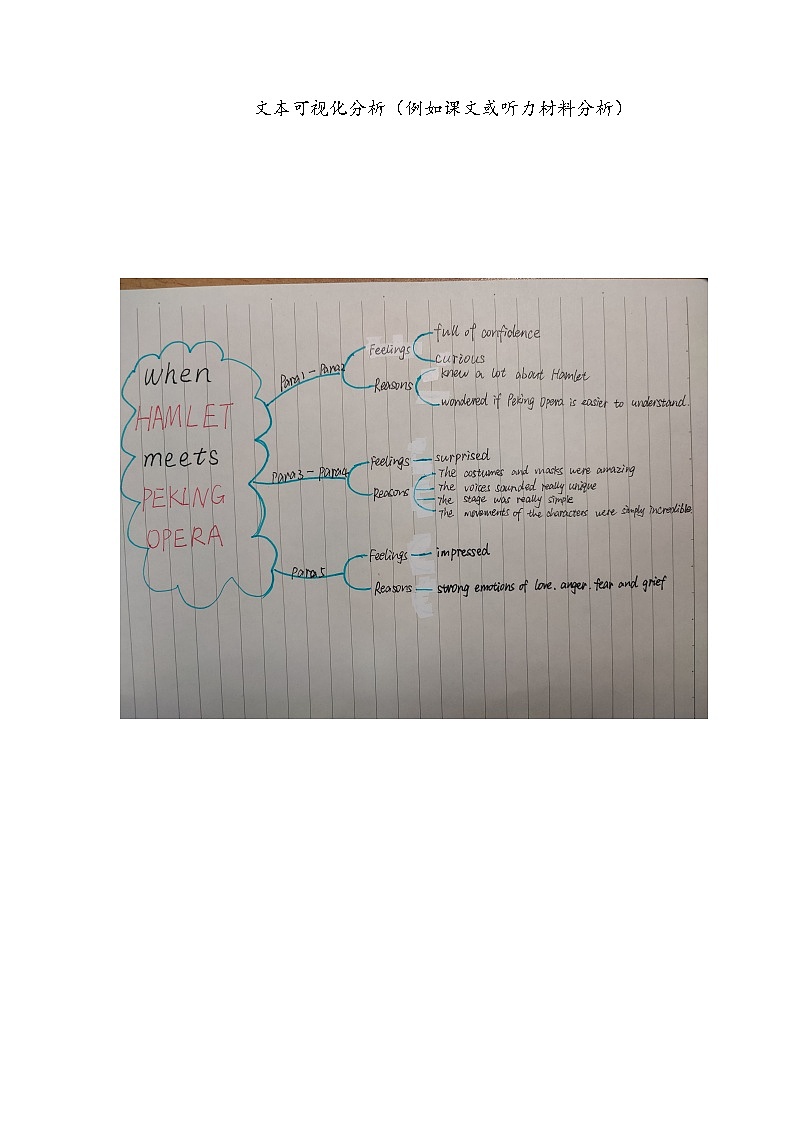 文本可视化分析（例如课文或听力材料分析）
when
HAMLET
meets
PEKING
OPERA
Para1-Para2
Feelings
full of confidence
curious
Reasons
knew a lot about Hamlet
wondered if Peking Opera is easier to understand.
Para3-Para4
Feelings
surprised
Reasons
The costumes and masks were amazing
The voices sounded really unique
The stage was really simple
The movements of the characters were simply incredible.
Para5
Feelings
impressed
Reasons
strong emotions of love. anger. fear and grief